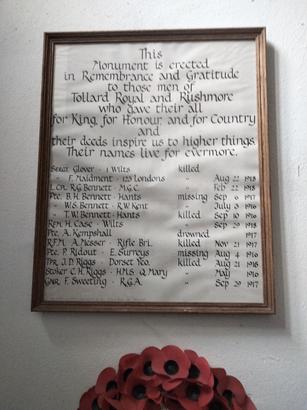 This
Monument is erected
in Remembrance and Gratitude
to those men of
Tollard Royal and Rushmore
who gave their all
for King, for Honour, and for Country
and
their deeds inspire us to higher things
Their names live for evermore.
Sergt Glover - 1 Wilts killed
" F. Maidment - 123 Londons " Aug 22 1918
L. Cpl R.G. Bennett - M.G.C. " Feb 22 1918
Pte. B.H. Bennett - Hants missing Sep 6 1917
" W.S. Bennett - R.W. Kent " July 3 1916
" T.W. Bennett - Hants killed Sep 10 1916
Rfm. H. Case - Wilts " Sep 29 1918
Pte. A. Kempshall drowned 1917
RFM. A. Messer - Rifle Bri. killed Nov 21 1917
Pte. P. Ridout - E. Surreys missing Aug 4 1916
Tpr. J.D. Riggs - Dorset Yeo. killed Aug 21 1918
Stoker C.H. Riggs - HMS Q. Mary " May 1916
Gnr F. Sweeting - R.G.A. " Sep 29 1917